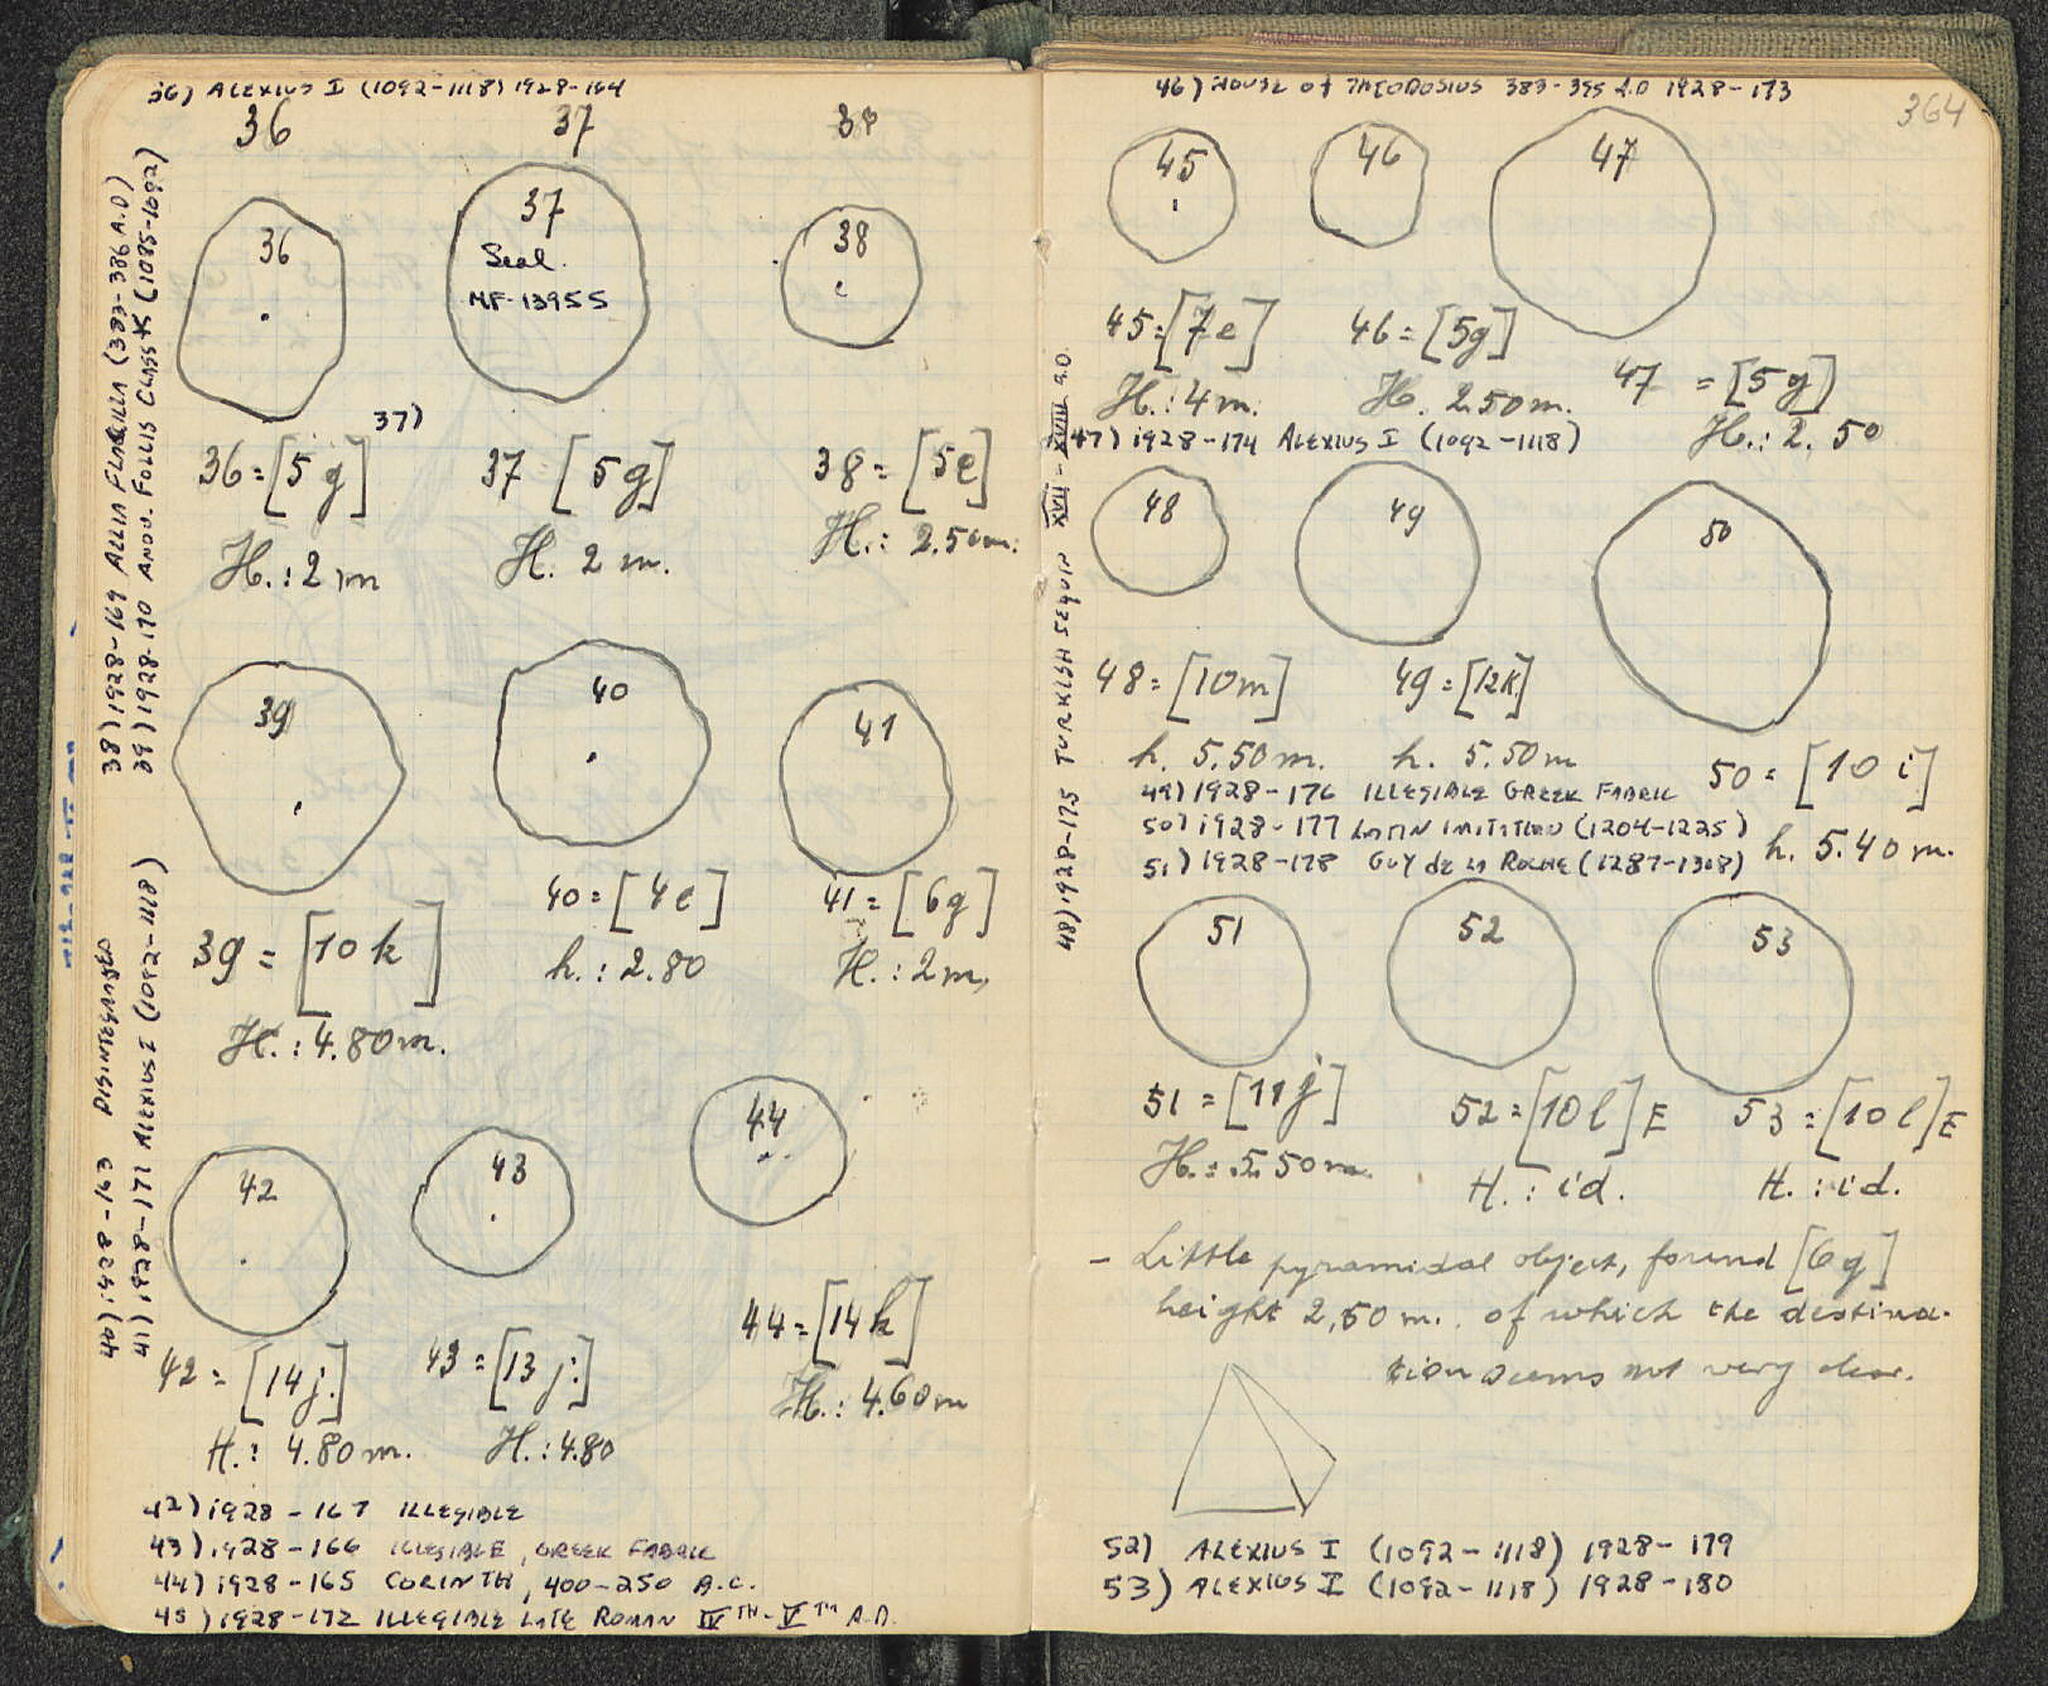 36) ALEXIUS I (1092-1118) 1928-164
36 37 38
36
37
Seal.
MF-13955
38
37)
36=[5g] 37 [5g] 38=[5e]
H.:2m H. 2 m. H.: 2.50m.
39
40
41
40=[4e] 41=[6g]
39=[10k] h.:2.80 H.:2m.
H.:4.80m.
44
42
43
44=[14k]
42=[14j.] 43=[13j.]
H.:4.60m
H.: 4.80m. H.:4.80
42) 1928-167 ILLEGIBLE
43) 1928-166 ILLEGIBLE, GREEK FABRIC
44) 1928-165 CORINTH, 400-250 A.C.
45) 1928-172 ILLEGIBLE LATE ROMAN IVTH-VTH A.D.
38) 1928-169 AELIA FLACILLA (383-386 A.D)
39) 1928-170 ANON. FOLLIS CLASS K (1085-1092)
40) 1928-163 DISINTEGRATED
41) 1928-171 ALEXIUS I (1092-1118)
46) HOUSE of THEODOSIUS 383-395 A.D 1928-173
364
45 46 47
45=[7e] 46=[5g]
47 =[5g]
H.:4m. H. 2.50m.
H.:2.50
47) 1928-174 ALEXIUS I (1092-1118)
48 49 50
48=[10m] 49=[12k]
h. 5.50m. h. 5.50m
50=[10i]
49) 1928-176 ILLEGIBLE GREEK FABRIC
50) 1928-177 LATIN IMITATION (1204-1225)
h. 5.40m.
51) 1928-178 GUY de la ROCHE (1287-1308)
48) 1928-175 TURKISH SEQUIN XVII-XVIII A.D.
51 52 53
51=[11j] 52=[10l]E 53=[10l]E
H.:5.50m. H.:id. H.:id.
- Little pyramidal object, found [6g]
height 2,50 m. of which the destina-
tion seems not very clear.
52) ALEXIUS I (1092-1118) 1928-179
53) ALEXIUS I (1092-1118) 1928-180